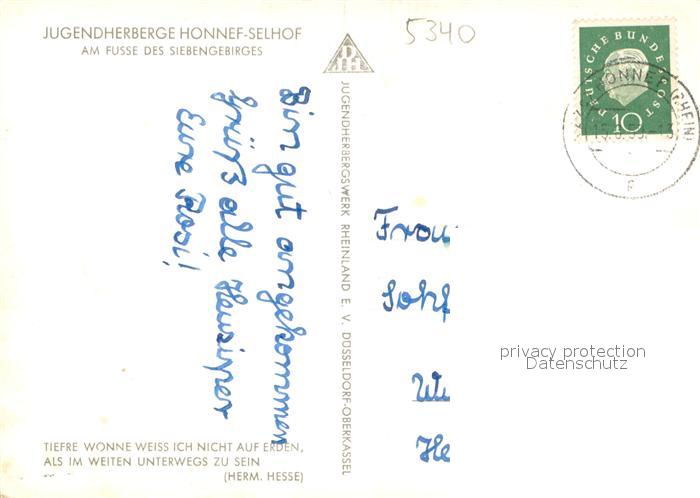 JUGENDHERBERGE HONNEF-SELHOF
AM FUSSE DES SIEBENGEBIRGES
5340
DEUTSCHE BUNDESPOST
10
HONNEF (RHEIN)
Bin gut angekommen
Grüß alle
Eure Rosi!
JUGENDHERBERGSWERK RHEINLAND E. V. DÜSSELDORF-OBERKASSEL
Frau
privacy protection
Datenschutz
TIEFRE WONNE WEISS ICH NICHT AUF ERDEN,
ALS IM WEITEN UNTERWEGS ZU SEIN
(HERM. HESSE)